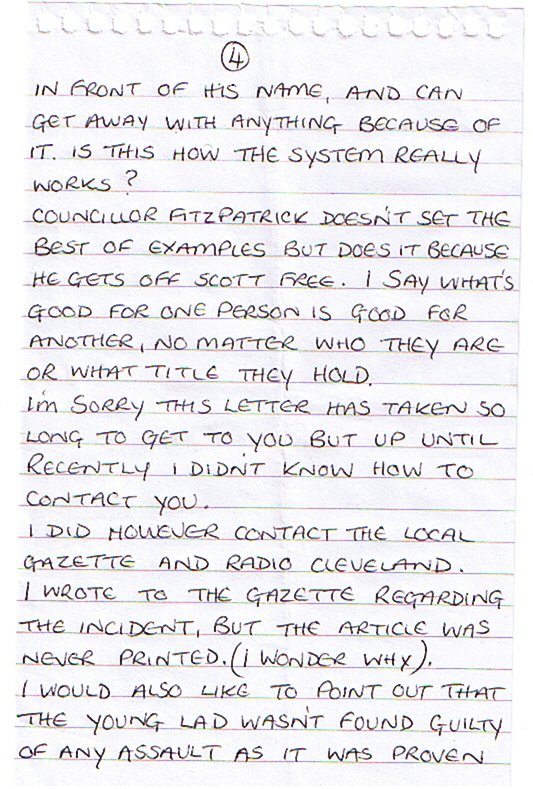 4
IN FRONT OF HIS NAME, AND CAN
GET AWAY WITH ANYTHING BECAUSE OF
IT. IS THIS HOW THE SYSTEM REALLY
WORKS?
COUNCILLOR FITZPATRICK DOESN'T SET THE
BEST OF EXAMPLES BUT DOES IT BECAUSE
HE GETS OFF SCOTT FREE. I SAY WHAT'S
GOOD FOR ONE PERSON IS GOOD FOR
ANOTHER, NO MATTER WHO THEY ARE
OR WHAT TITLE THEY HOLD.
I'M SORRY THIS LETTER HAS TAKEN SO
LONG TO GET TO YOU BUT UP UNTIL
RECENTLY I DIDN'T KNOW HOW TO
CONTACT YOU.
I DID HOWEVER CONTACT THE LOCAL
GAZETTE AND RADIO CLEVELAND.
I WROTE TO THE GAZETTE REGARDING
THE INCIDENT, BUT THE ARTICLE WAS
NEVER PRINTED. (I WONDER WHY).
I WOULD ALSO LIKE TO POINT OUT THAT
THE YOUNG LAD WASN'T FOUND GUILTY
OF ANY ASSAULT AS IT WAS PROVEN